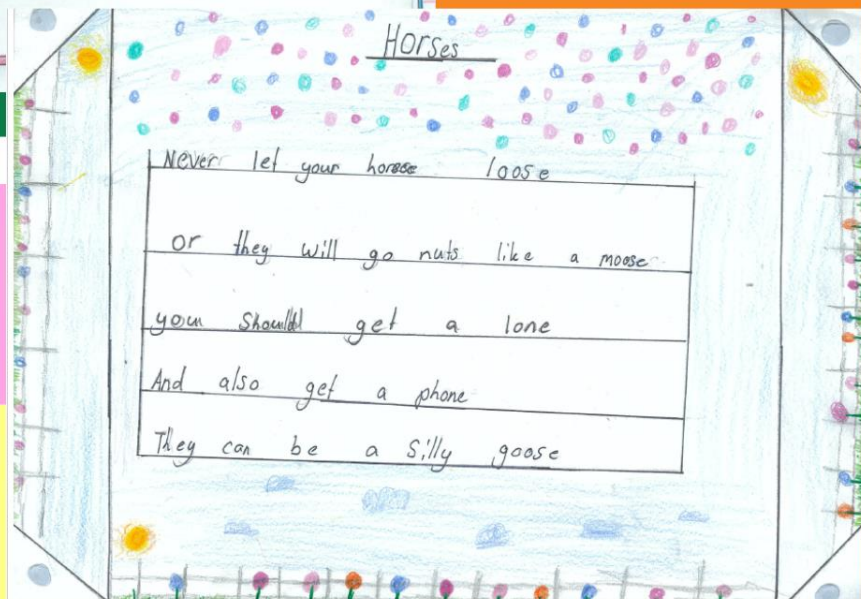 Horses
Never let your horse loose
or they will go nuts like a moose
you should get a lone
And also get a phone
They can be a silly goose